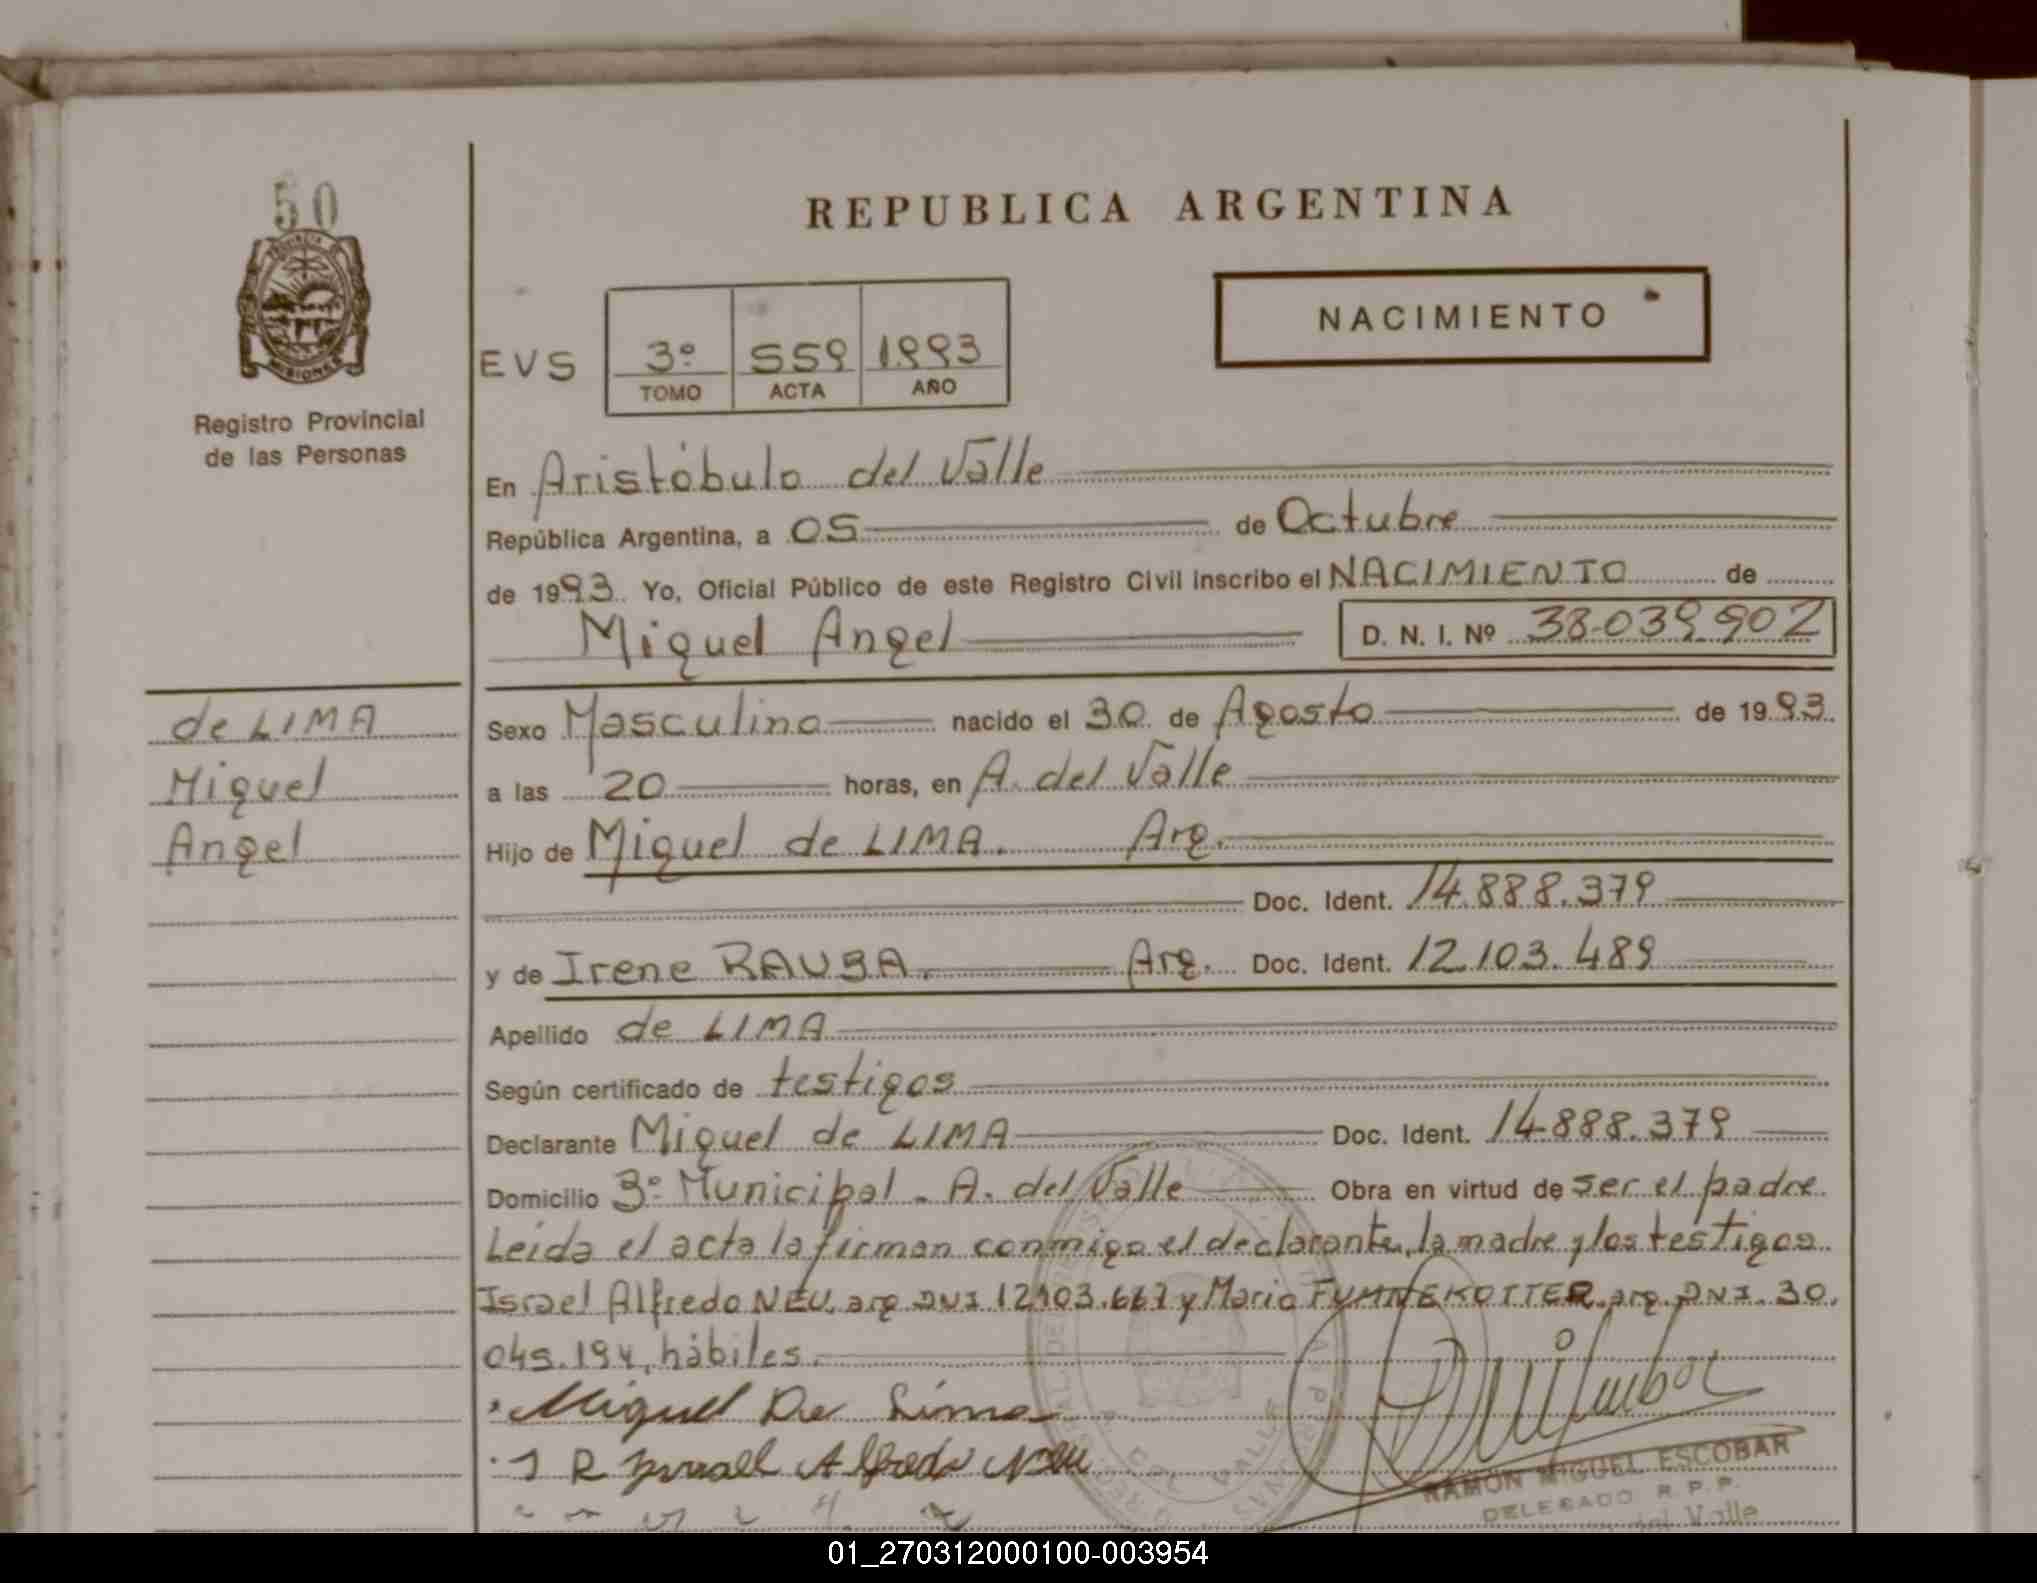 50
PROVINCIA DE
MISIONES
Registro Provincial
de las Personas
REPUBLICA ARGENTINA
NACIMIENTO
EVS 3º 559 1993
TOMO ACTA AÑO
En Aristóbulo del Valle
República Argentina, a 05 de Octubre
de 1993 Yo, Oficial Público de este Registro Civil inscribo el NACIMIENTO de
Miguel Angel D. N. I. Nº 38.039.902
de LIMA
Miguel
Angel
Sexo Masculino nacido el 30 de Agosto de 1993
a las 20 horas, en A. del Valle
Hijo de Miguel de LIMA. Arg.
Doc. Ident. 14.888.379
y de Irene RAUBA. Arg. Doc. Ident. 12.103.489
Apellido de LIMA
Según certificado de testigos
Declarante Miguel de LIMA Doc. Ident. 14.888.379
Domicilio 3º Municipal - A. del Valle Obra en virtud de ser el padre
Leída el acta la firman conmigo el declarante, la madre y los testigos
Israel Alfredo NEU, arg. DNI 12.103.667 y Mario arg. DNI. 30.
045.194, hábiles.
Miguel De Lima
Israel Alfredo Neu
RAMON MIGUEL ESCOBAR
DELEGADO R. P. P.
del Valle
01_270312000100-003954